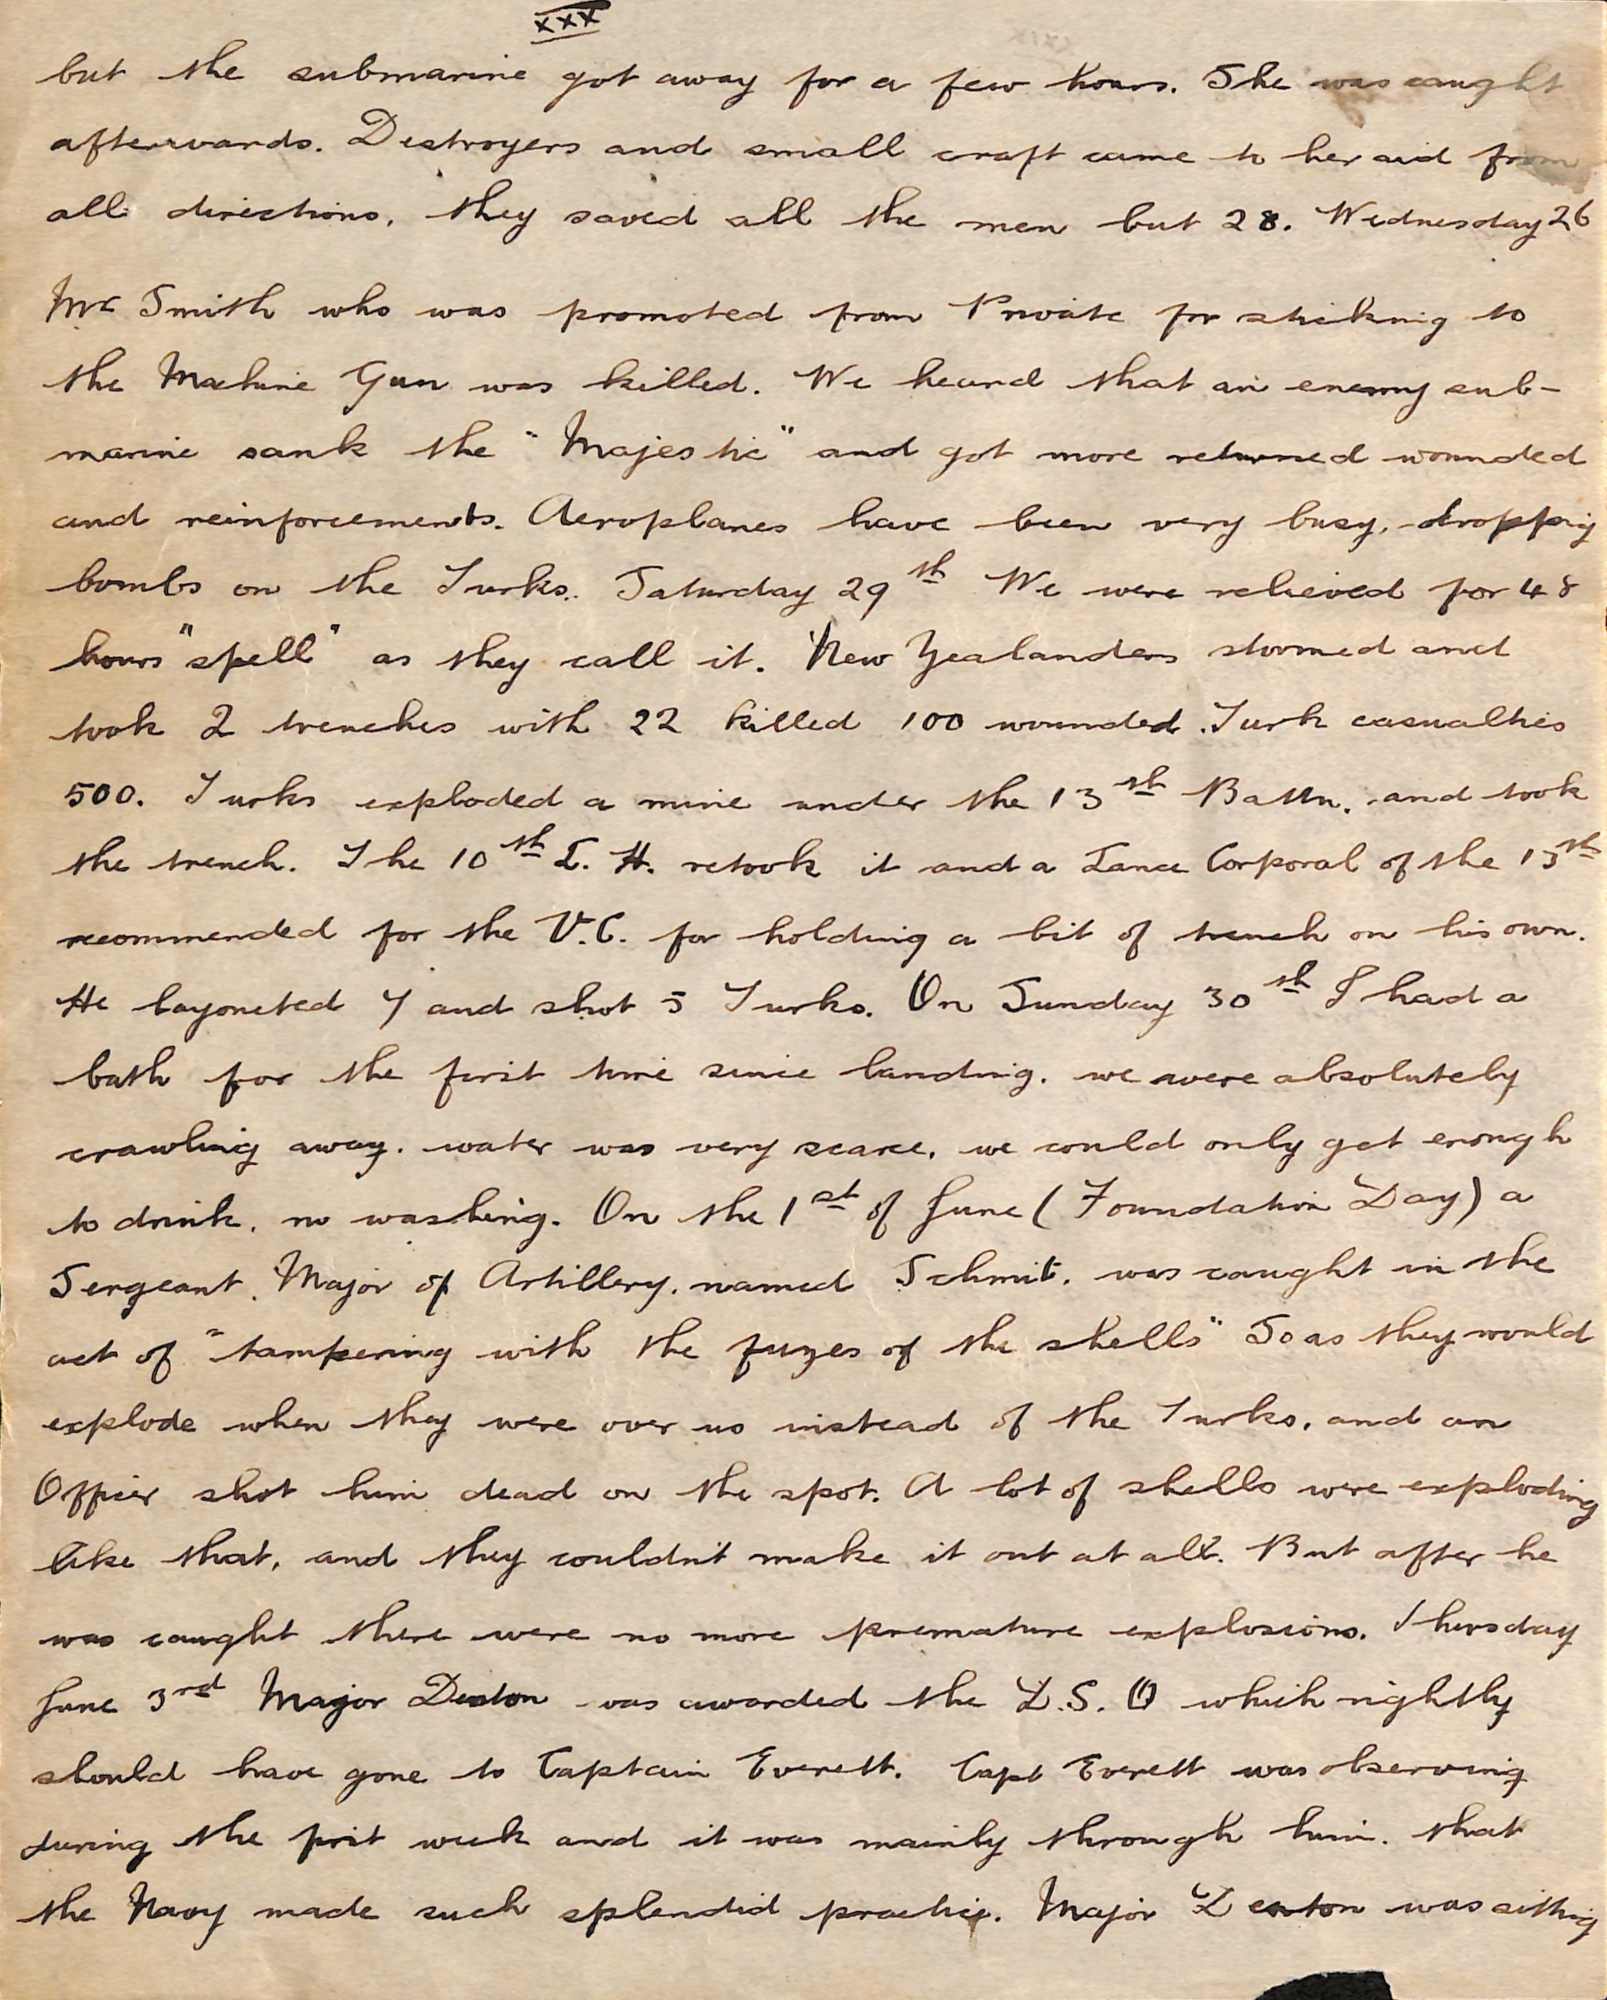 xxx
but the submarine got away for a few hours. She was caught
afterwards. Destroyers and small craft came to her aid from
all directions, they saved all the men but 28. Wednesday 26
Mr Smith who was promoted from Private for sticking to
the Machine Gun was killed. We heard that an enemy sub-
marine sank the "Majestic" and got more returned wounded
and reinforcements. Aeroplanes have been very busy, dropping
bombs on the Turks. Saturday 29th We were relieved for 48
hours "spell" as they call it. New Zealanders stormed and
took 2 trenches with 22 killed 100 wounded. Turk casualties
500. Turks exploded a mine under the 13th Battn. and took
the trench. The 10th L. H. retook it and a Lance Corporal of the 13th
recommended for the V.C. for holding a bit of trench on his own.
He bayoneted 7 and shot 5 Turks. On Sunday 30th I had a
bath for the first time since landing. we were absolutely
crawling away. water was very scarce, we could only get enough
to drink, no washing. On the 1st of June (Foundation Day) a
Sergeant. Major of Artillery. named Schmit. was caught in the
act of "tampering with the fuzes of the shells" So as they would
explode when they were over us instead of the Turks, and an
Officer shot him dead on the spot. A lot of shells were exploding
like that, and they couldn't make it out at all. But after he
was caught there were no more premature explosions. Thursday
June 3rd Major Denton was awarded the D.S.O which rightly
should have gone to Captain Everett. Capt Everett was observing
during the first week and it was mainly through him. that
the Navy made such splendid practice. Major Denton was sitting